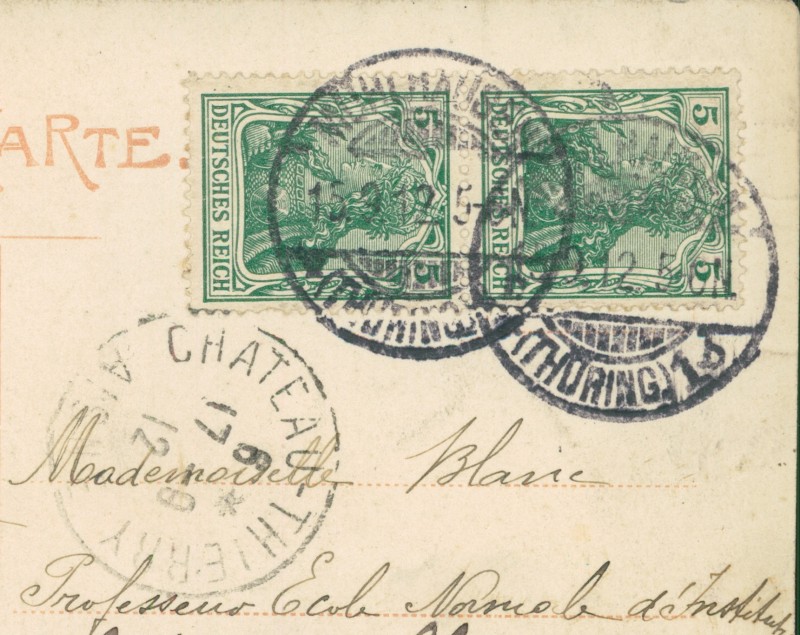 ARTE.
5
DEUTSCHES REICH
5
5
DEUTSCHES REICH
5
12.5
(THÜRING.)
12.5
(THÜRING.) 1b
CHATEAU-THIERRY
17
9
12
Mademoiselle Blanc
Professeur Ecole Normale d'Institut